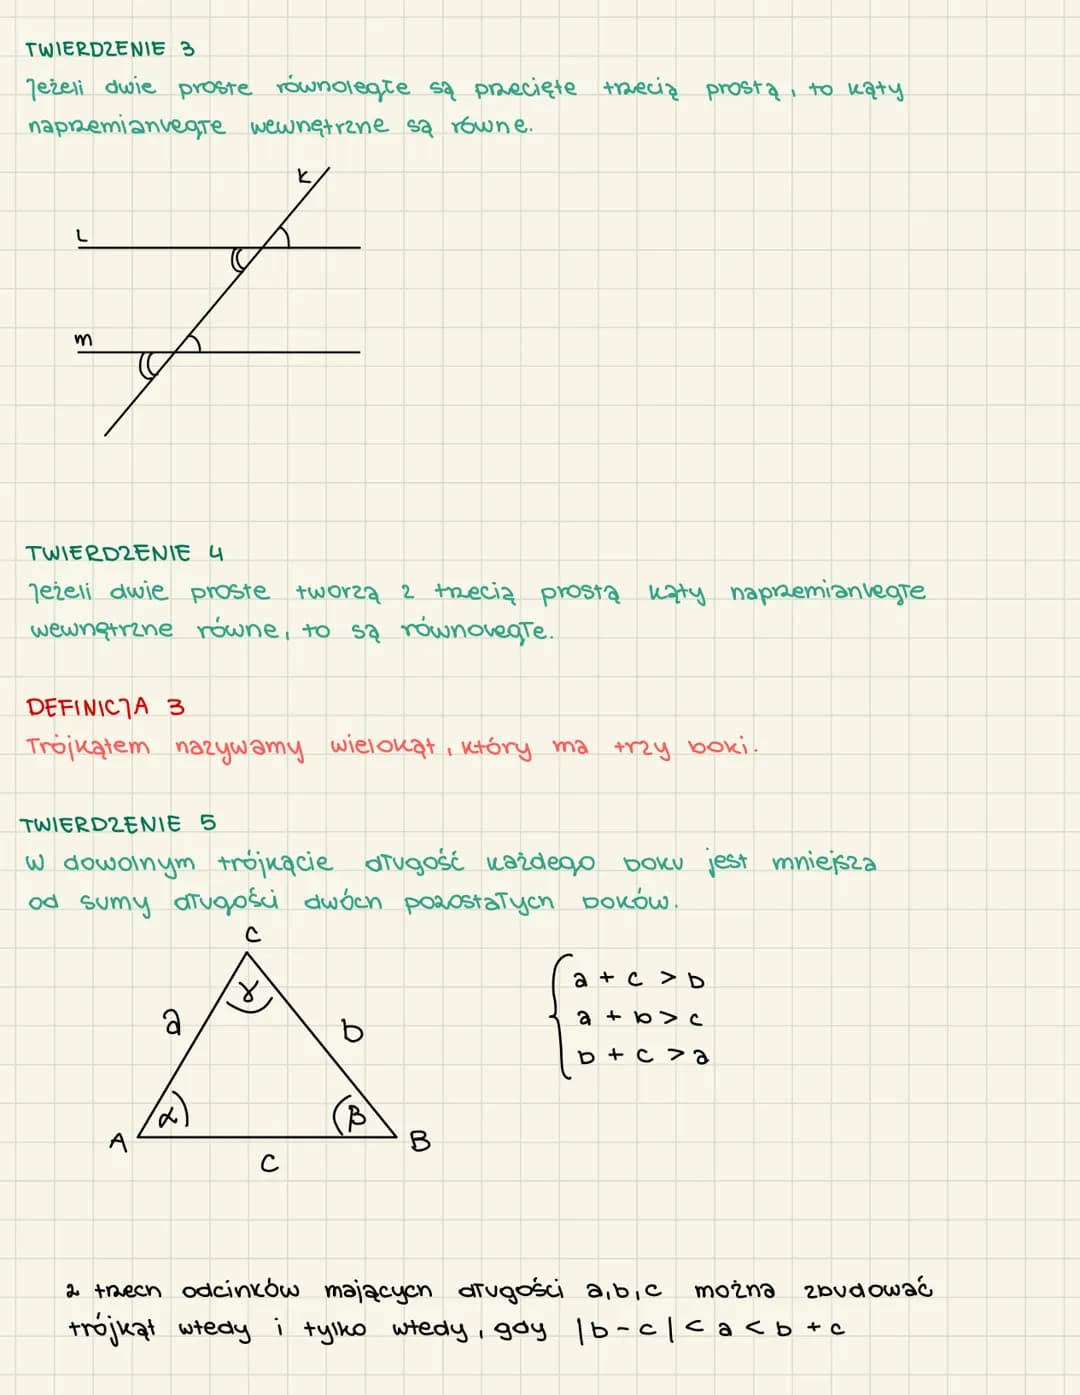 TWIERDZENIE 3
Jeżeli dwie proste równoległe są przecięte trzecią prostą, to kąty
naprzemianległe wewnętrzne są równe.
k
L
m
TWIERDZENIE 4
Jeżeli dwie proste tworzą z trzecią prostą kąty naprzemianległe
wewnętrzne równe, to są równoległe.
DEFINICJA 3
Trójkątem nazywamy wielokąt, który ma trzy boki.
TWIERDZENIE 5
W dowolnym trójkącie długość każdego boku jest mniejsza
od sumy długości dwóch pozostałych boków.
C
γ
a
b
α
β
A
B
c
a + c > b
a + b > c
b + c > a
z trzech odcinków mających długości a, b, c można zbudować
trójkąt wtedy i tylko wtedy, gdy |b - c| < a < b + c